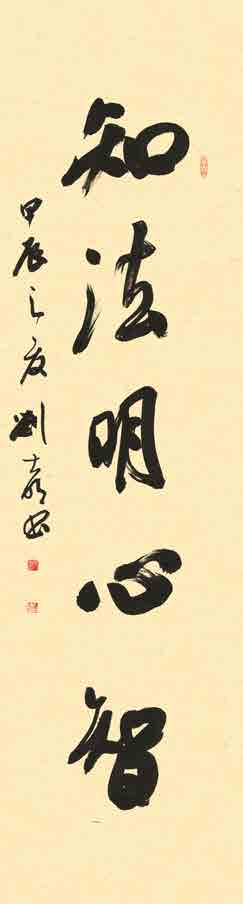 知法明心智
甲辰之夏刘书